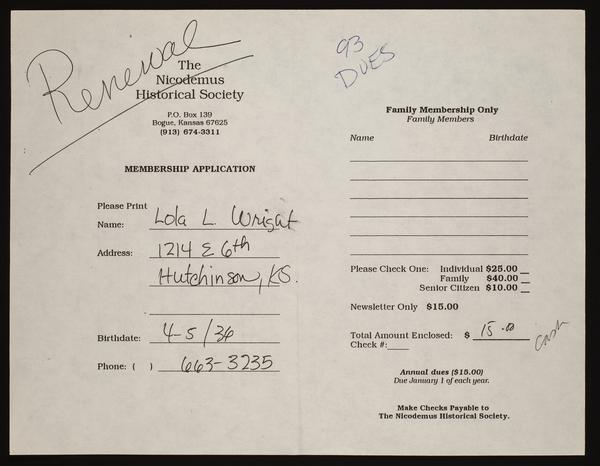 Renewal
The
Nicodemus
Historical Society
P.O. Box 139
Bogue, Kansas 67625
(913) 674-3311
MEMBERSHIP APPLICATION
Please Print
Name: Lola L. Wright
Address: 1214 E 6th
Hutchinson, KS.
Birthdate: 4-5/36
Phone: ( ) 663-3235
93
DUES
Family Membership Only
Family Members
Name Birthdate
Please Check One: Individual $25.00
Family $40.00
Senior Citizen $10.00
Newsletter Only $15.00
Total Amount Enclosed: $ 15.00 cash
Check #:
Annual dues ($15.00)
Due January 1 of each year.
Make Checks Payable to
The Nicodemus Historical Society.